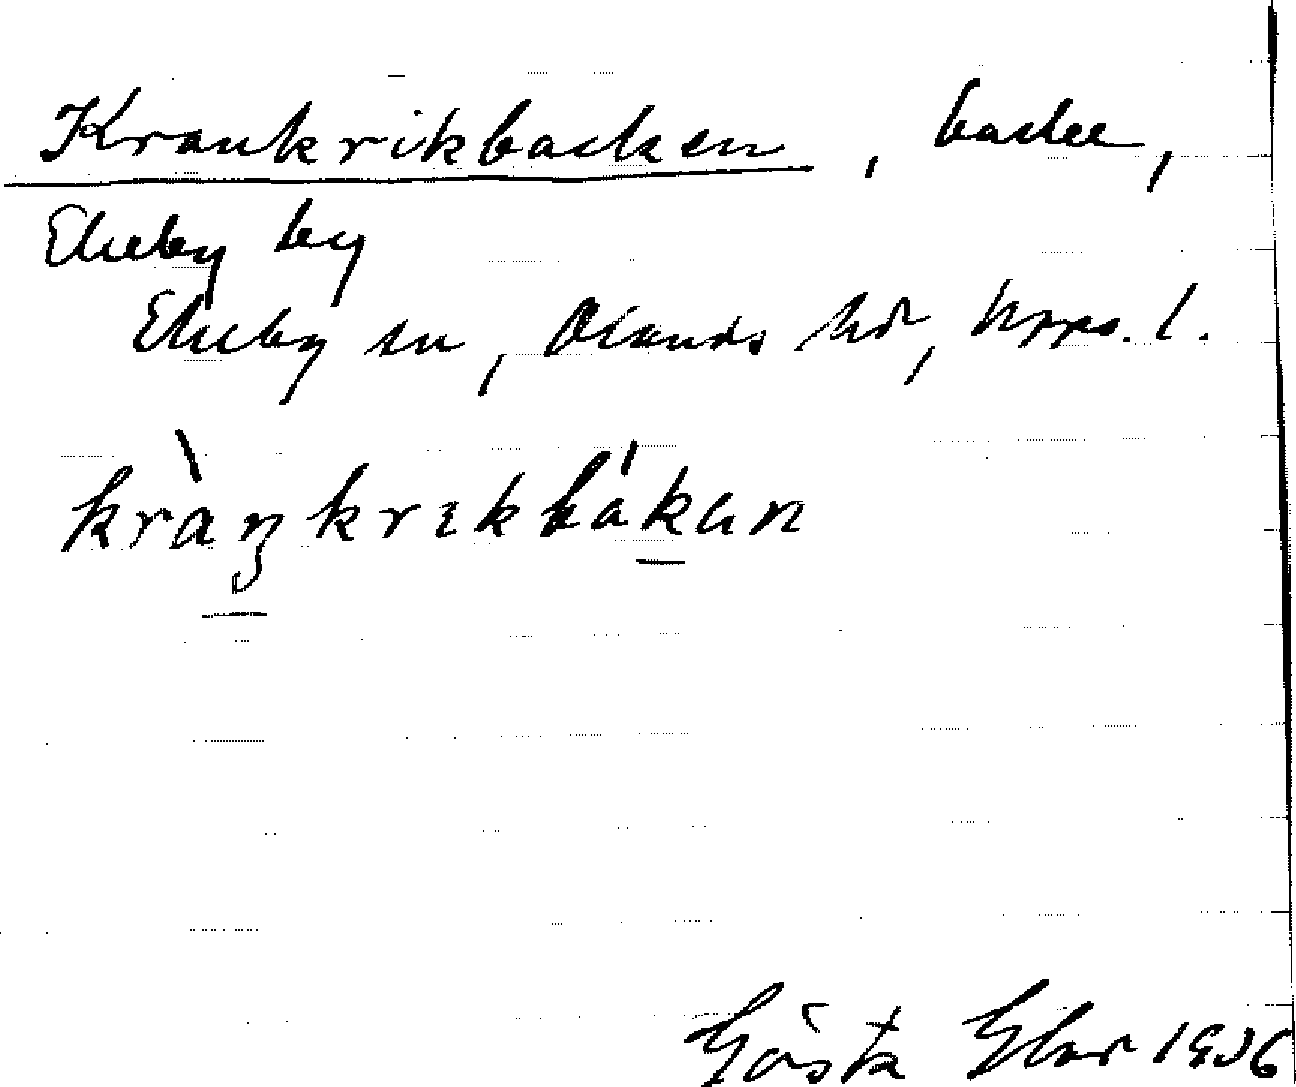 Krankrikbacken, backe,
Ekeby by
Ekeby sn, Olands hd, Upps. l.
kràŋkrɩkbákan
Gösta Eler 1936